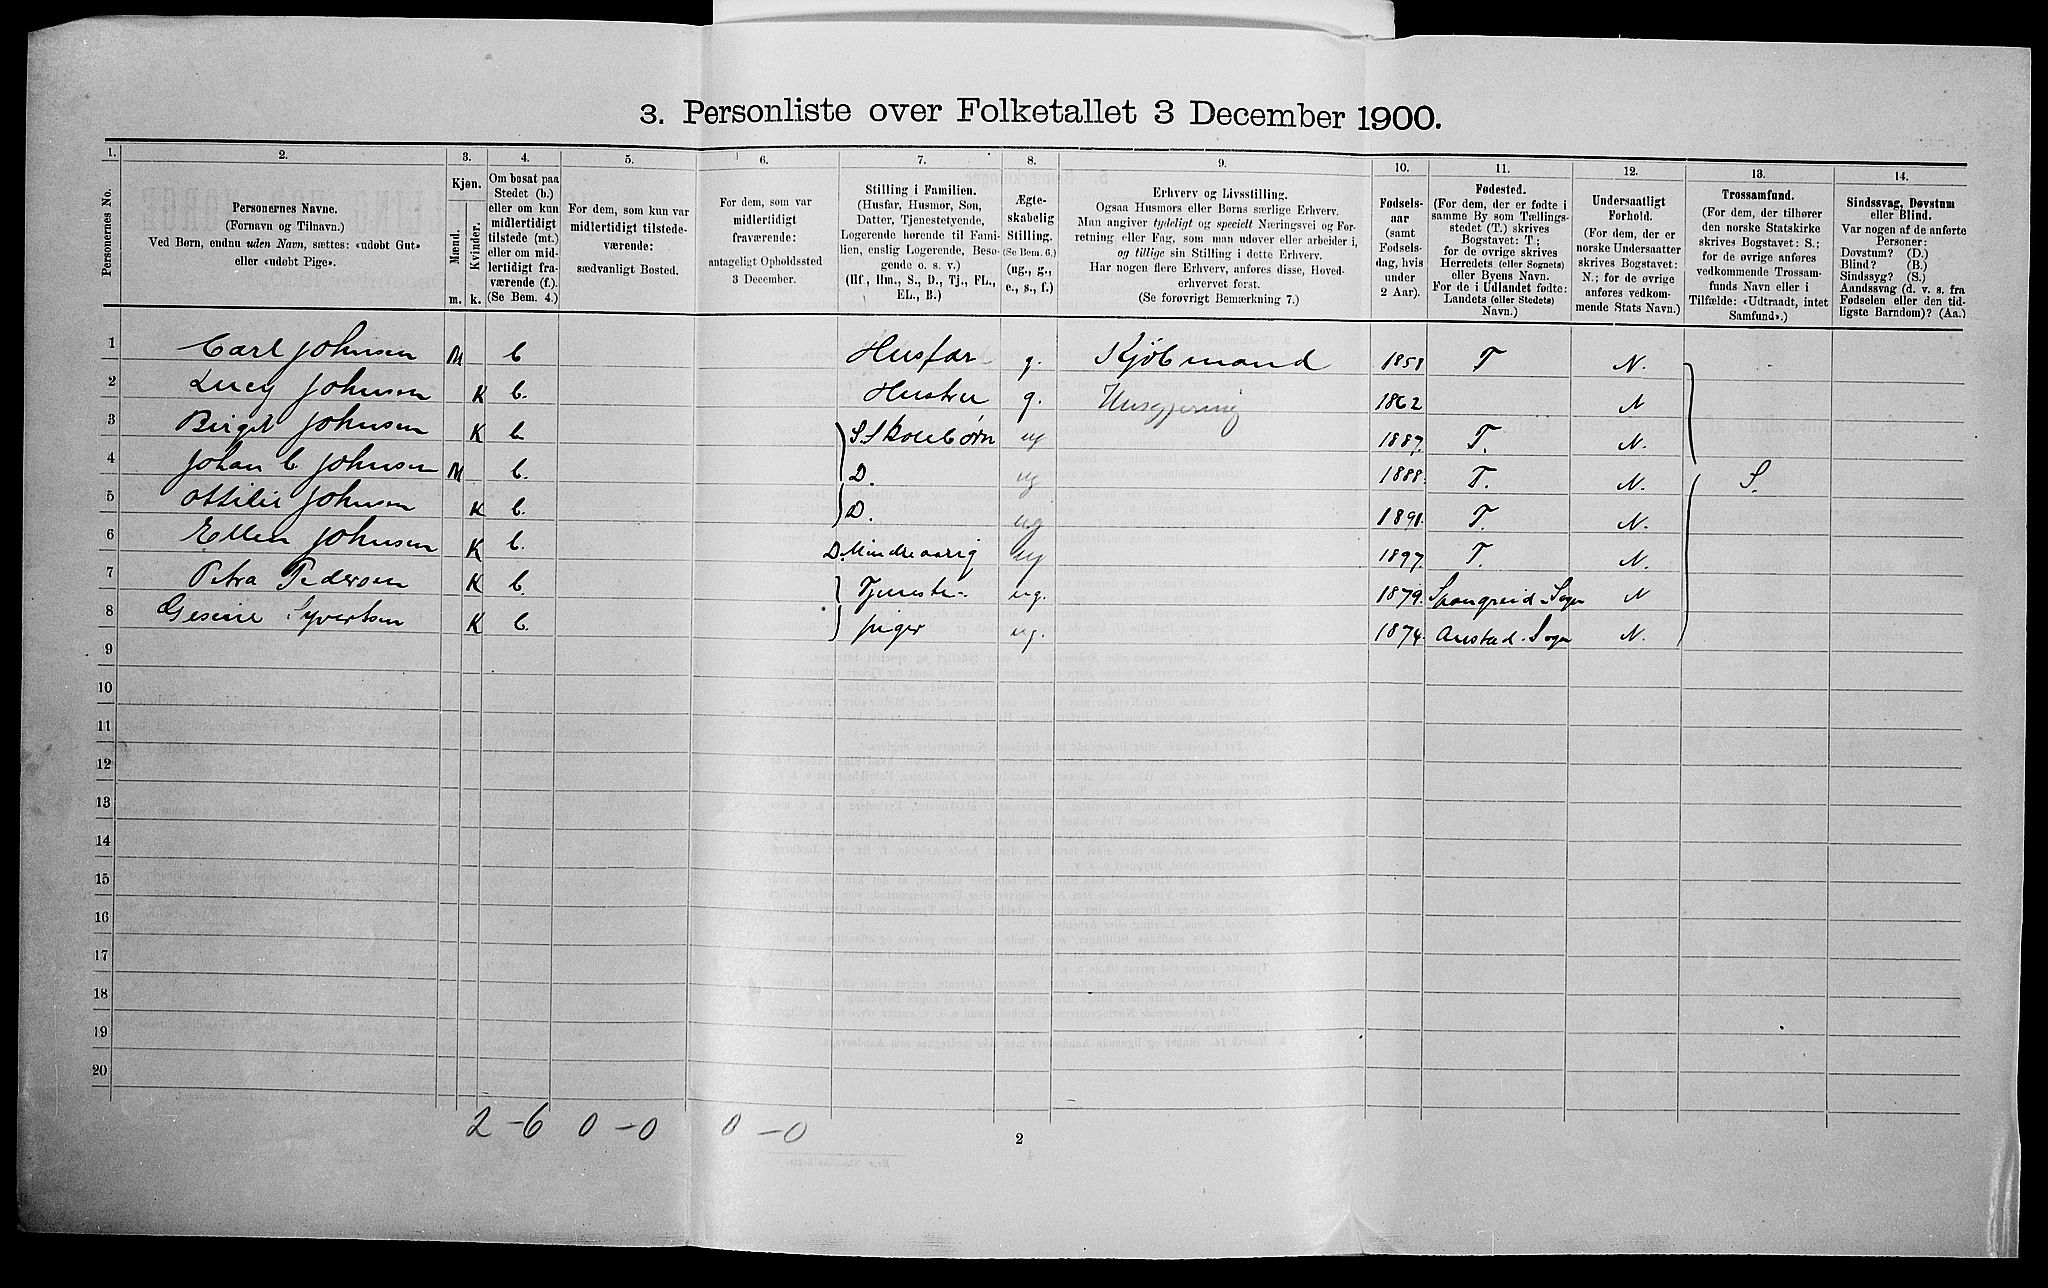 3. Personliste over Folketallet 3 December 1900.
1. 2. 3. 4. 5. 6. 7. 8. 9. 10. 11. 12. 13. 14.
Personernes No.
Personernes Navne.
(Fornavn og Tilnavn.)
Ved Børn, endnu uden Navn, sættes: «udøbt Gut»
eller «udøbt Pige».
Kjøn.
Mænd.
Kvinder.
m. k.
Om bosat paa
Stedet (b.)
eller om kun
midlertidigt
tilstede (mt.)
eller om mid-
lertidigt fra-
værende (f.)
(Se Bem. 4.)
For dem, som kun var
midlertidigt tilstede-
værende:
sædvanligt Bosted.
For dem, som var
midlertidigt
fraværende:
antageligt Opholdssted
3 December.
Stilling i Familien.
(Husfar, Husmor, Søn,
Datter, Tjenestetyende,
Logerende hørende til Fami-
lien, enslig Logerende, Besø-
gende o. s. v.)
(Hf., Hm., S., D., Tj., FL.,
EL., B.)
Ægte-
skabelig
Stilling.
(Se Bem. 6.)
(ug., g.,
e., s., f.)
Erhverv og Livsstilling.
Ogsaa Husmors eller Børns særlige Erhverv.
Man angiver tydeligt og specielt Næringsvei og For-
retning eller Fag, som man udøver eller arbeider i,
og tillige sin Stilling i dette Erhverv.
Har nogen flere Erhverv, anføres disse, Hoved-
erhvervet først.
(Se forøvrigt Bemærkning 7.)
Fødsels-
aar
(samt
Fødsels-
dag, hvis
under
2 Aar).
Fødested.
(For dem, der er fødte i
samme By som Tællings-
stedet (T.) skrives
Bogstavet: T;
for de øvrige skrives
Herredets (eller Sognets)
eller Byens Navn.
For de i Udlandet fødte:
Landets (eller Stedets)
Navn.)
Undersaatligt
Forhold.
(For dem, der er
norske Undersaatter
skrives Bogstavet:
N.; for de øvrige
anføres vedkom-
mende Stats Navn.)
Trossamfund.
(For dem, der tilhører
den norske Statskirke
skrives Bogstavet: S.;
for de øvrige anføres
vedkommende Trossam-
funds Navn eller i
Tilfælde: «Udtraadt, intet
Samfund».)
Sindssvag, Døvstum
eller Blind.
Var nogen af de anførte
Personer:
Døvstum? (D.)
Blind? (B.)
Sindssyg? (S.)
Aandssvag (d. v. s. fra
Fødselen eller den tid-
ligste Barndom)? (Aa.)
1 Carl Johnsen M b. Husfar g. Kjøbmand 1858 T N.
2 Lucy Johnsen K b. Hustru g. Husgjerning 1862 N
3 Birgit Johnsen K b. S Skolebørn ug 1887. T. N.
4 Johan C Johnsen M b. D. ug 1888. T. N. S.
5 Ottilie Johnsen K b. D. ug 1891. T. N.
6 Ellen Johnsen K b. D. Mindreaarig ug 1897. T. N.
7 Petra Pedersen K b. Tjeneste- ug. 1879. Spangreid Sogn N
8 Gesine Syvertsen K b. piger ug. 1874. Sogn N.
9
10
11
12
13
14
15
16
17
18
19
20
2 - 6 0 - 0 0 - 0
2